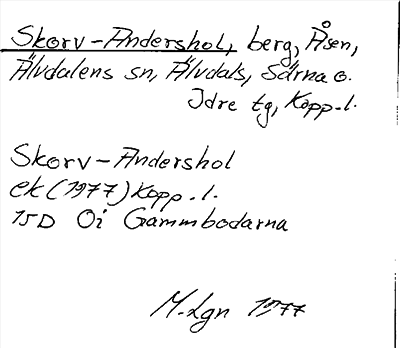 Skorv-Andershol, berg, Åsen,
Älvdalens sn, Älvdals, Särna o.
Idre tg, Kopp.l.
Skorv-Andershol
ek (1977) Kopp.l.
15D 0i Gammbodarna
M.Lgn 1977